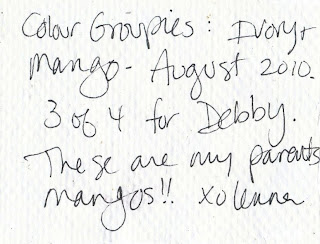 Colour Groupies: Ivory +
mango - August 2010.
3 of 4 for Debby.
These are my parents
mangos!! xo